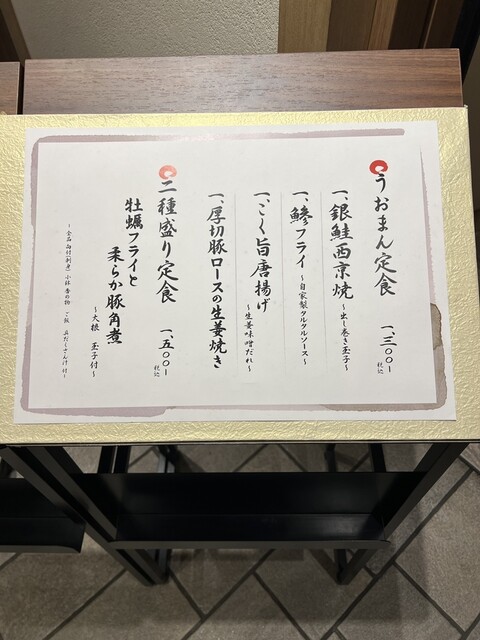 うおまん定食 一、三〇〇－ 税込
一、銀鮭西京焼 ～出し巻き玉子～
一、鯵フライ ～自家製タルタルソース～
一、こく旨唐揚げ ～生姜味噌だれ～
一、厚切豚ロースの生姜焼き
二種盛り定食 一、五〇〇－ 税込
牡蠣フライと
柔らか豚角煮
～大根 玉子付～
小鉢 香の物 ご飯